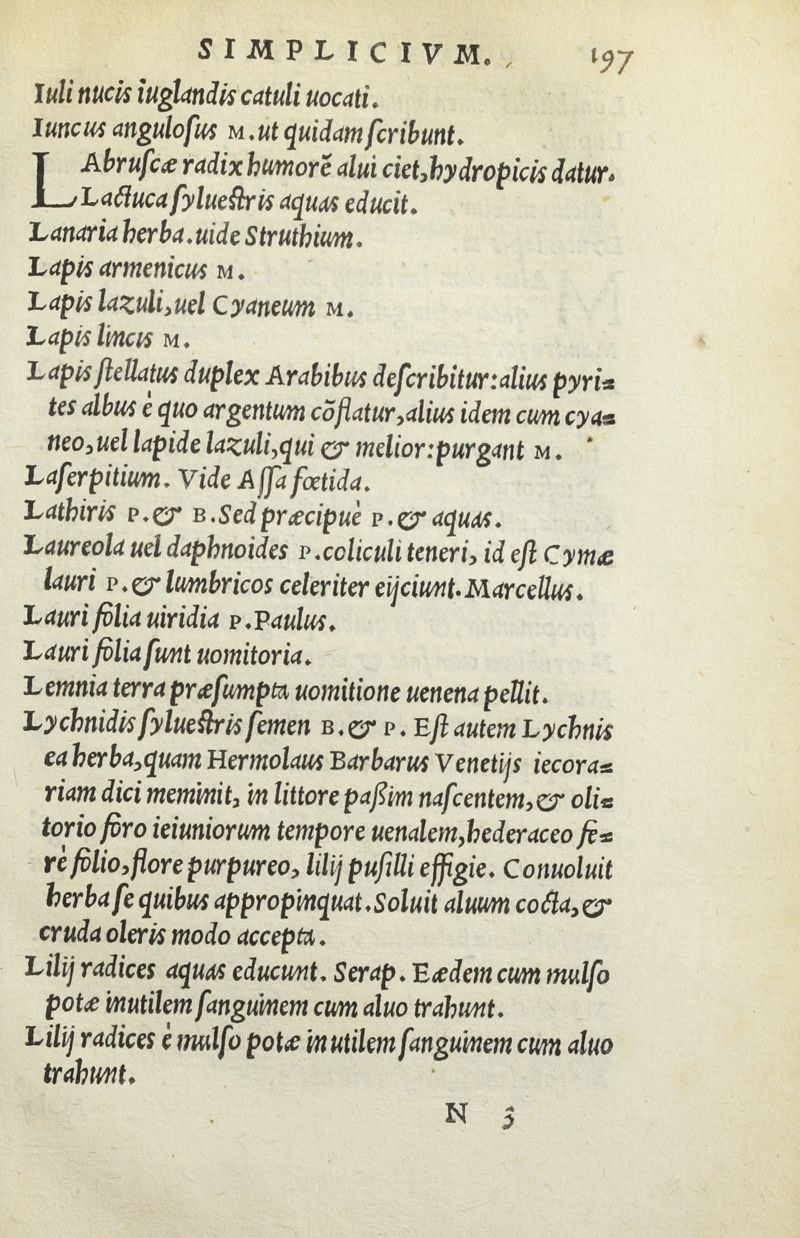 SIMPLICIVM. 197
Iuli nucis iuglandis catuli uocati.
Iuncus angulosus M. ut quidam scribunt.
LAbruscæ radix humorē alui ciet, hydropicis datur.
Lactuca syluestris aquas educit.
Lanaria herba. uide Struthium.
Lapis armenicus M.
Lapis lazuli, uel Cyaneum M.
Lapis lincis M.
Lapis stellatus duplex Arabibus describitur: alius pyri=
tes albus è quo argentum cōflatur, alius idem cum cya=
neo, uel lapide lazuli, qui & melior: purgant M.
Laserpitium. Vide Assa fœtida.
Lathiris P. & B. Sed præcipuè P. & aquas.
Laureola uel daphnoides P. coliculi teneri, id est Cymæ
lauri P. & lumbricos celeriter eijciunt. Marcellus.
Lauri folia uiridia P. Paulus.
Lauri folia sunt uomitoria.
Lemnia terra præsumpta uomitione uenena pellit.
Lychnidis syluestris semen B. & P. Est autem Lychnis
ea herba, quam Hermolaus Barbarus Venetijs iecora=
riam dici meminit, in littore paßim nascentem, & oli=
torio foro ieiuniorum tempore uenalem, hederaceo fe=
rè folio, flore purpureo, lilij pusilli effigie. Conuoluit
herba se quibus appropinquat. Soluit aluum cocta, &
cruda oleris modo accepta.
Lilij radices aquas educunt. Serap. Eædem cum mulso
potæ inutilem sanguinem cum aluo trahunt.
Lilij radices è mulso potæ inutilem sanguinem cum aluo
trahunt.
N 3